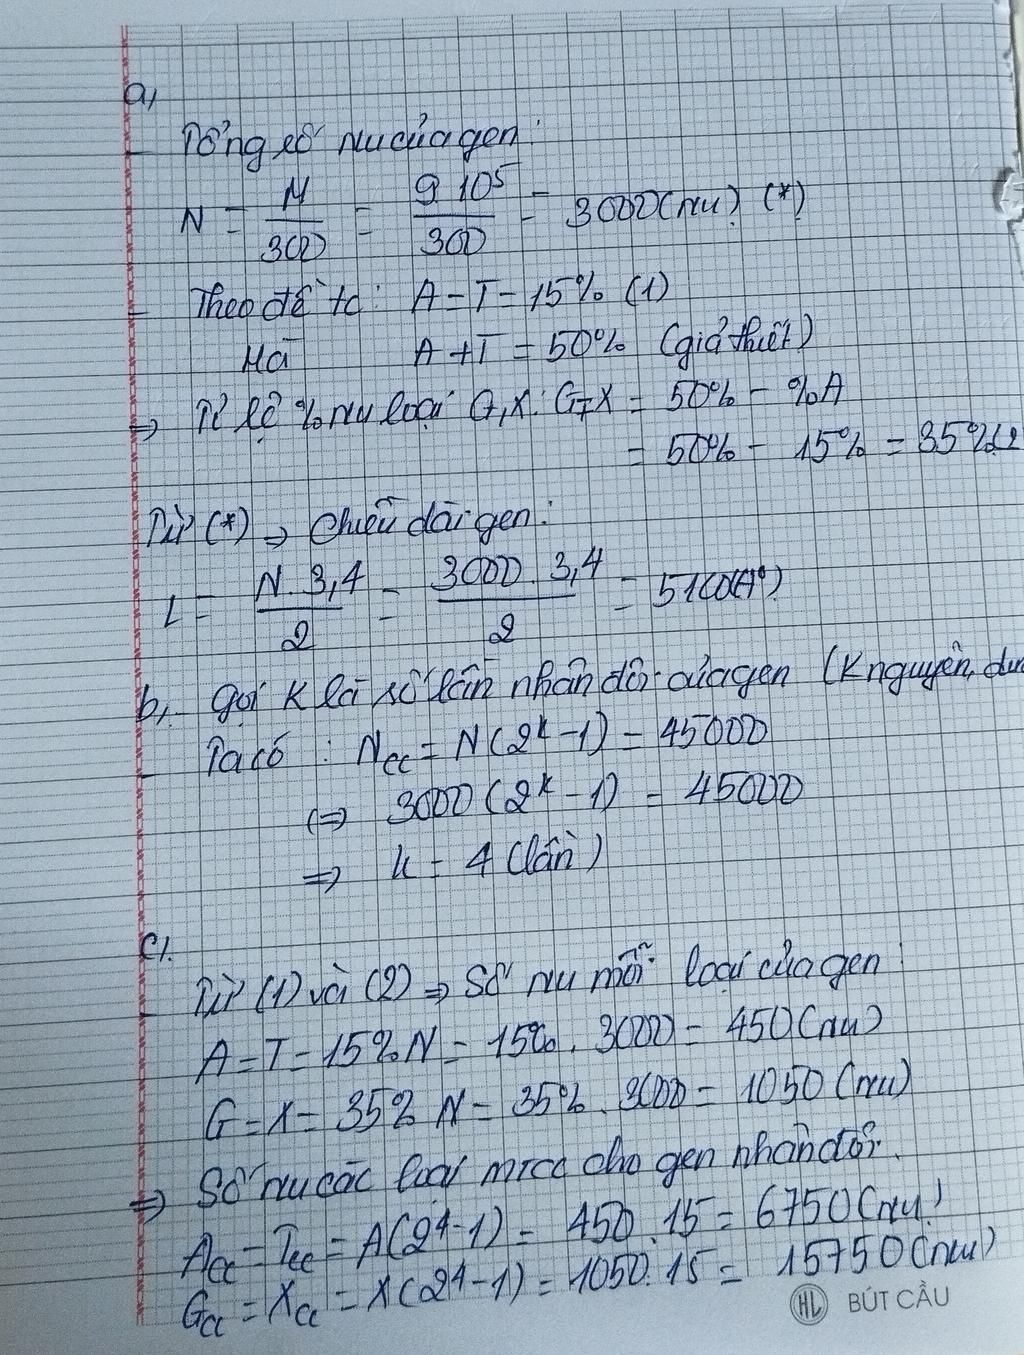 a,
- Tổng số nu của gen:
N = M/300 = 9.10⁵/300 = 3000 (nu) (*)
- Theo đề tc: A = T = 15% (1)
Mà A + T = 50% (giả thiết)
=> Tỉ lệ % nu loại G, X: G = X = 50% - %A
= 50% - 15% = 35% (2
Từ (*) => Chiều dài gen:
L = N.3,4/2 = 3000.3,4/2 = 5100 (A⁰)
b, - gọi K là số lần nhân đôi của gen (K nguyên, dư
- Ta có: Ncc = N(2ᵏ-1) = 45000
(=> 3000(2ᵏ-1) = 45000
=> k = 4 (lần)
c,
- Từ (1) và (2) => Số nu mỗi loại của gen:
A = T = 15% N = 15%. 3000 = 450 (nu)
G = X = 35% N = 35%. 3000 = 1050 (nu)
=> Số nu các loại mtcc cho gen nhân đôi.
Acc = Tcc = A(2⁴-1) = 450.15 = 6750 (nu)
Gcc = Xcc = X(2⁴-1) = 1050.15 = 15750 (nu)
HL BÚT CẦU